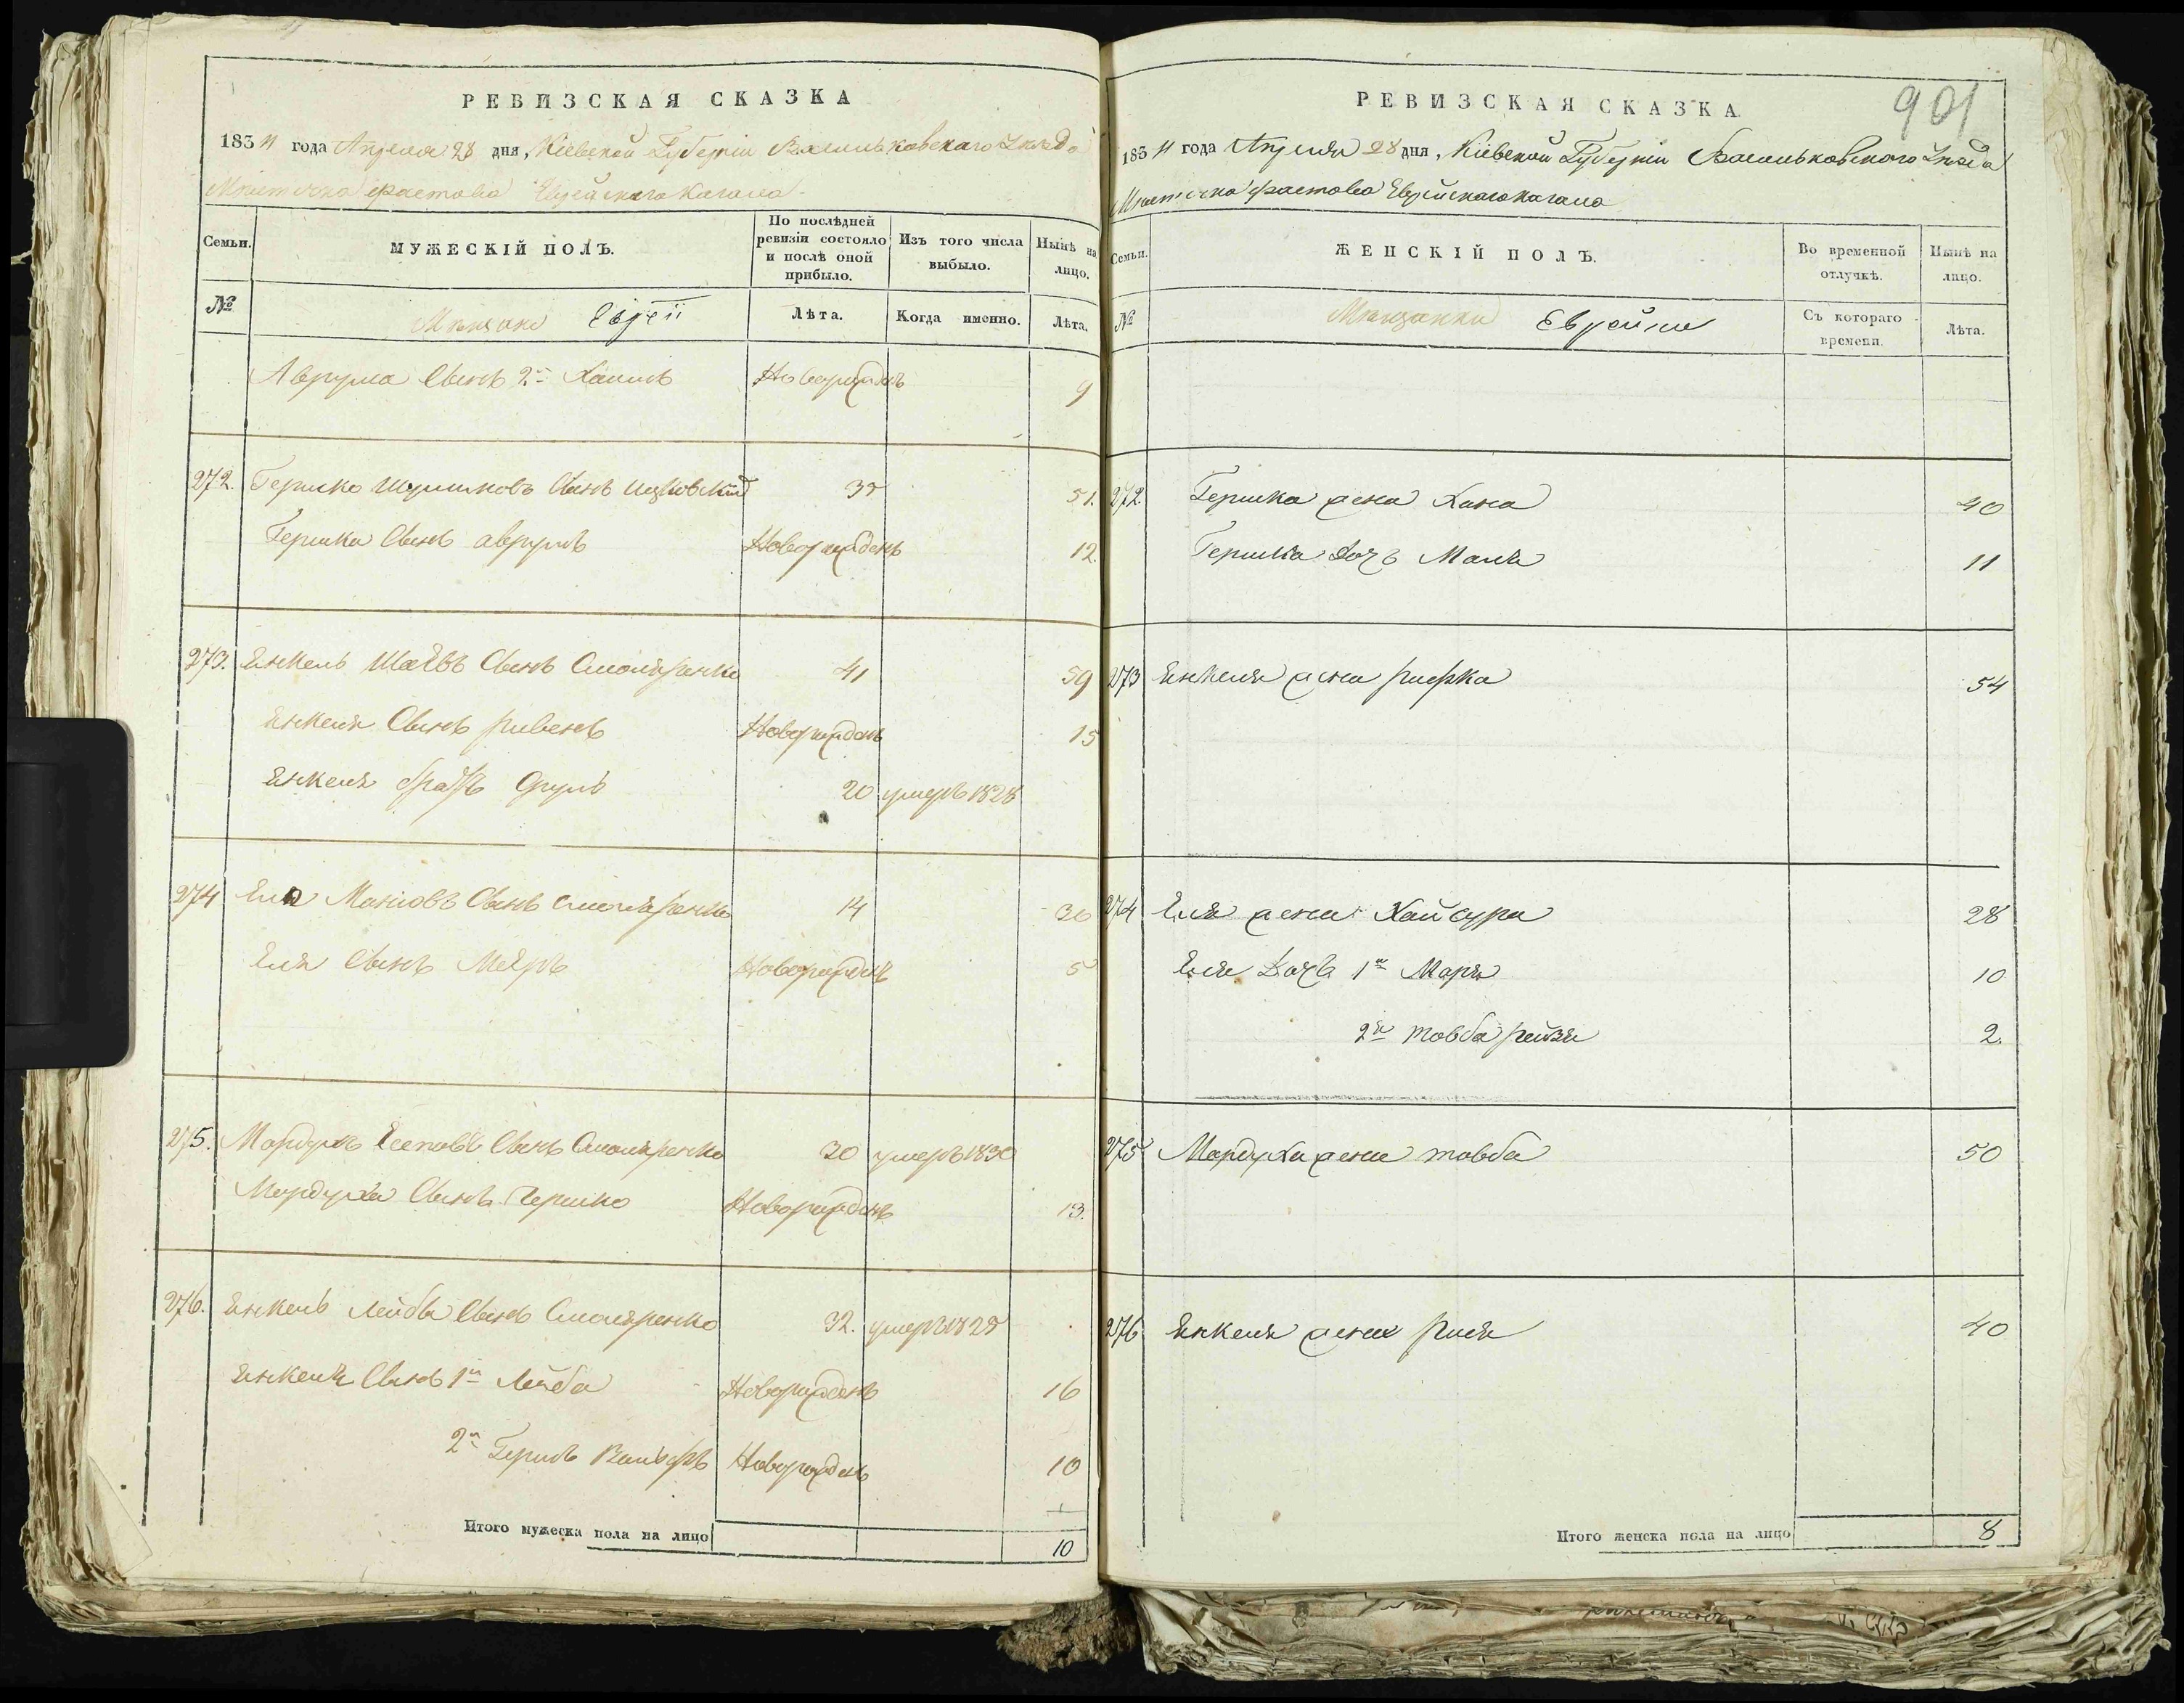 РЕВИЗСКАЯ СКАЗКА
1834 года Апреля 28 дня, Кіевской Губерніи Васильковскаго Уѣзда
Мѣстечка Фастова Еврейскаго Кагала
Семьи.
МУЖЕСКІЙ ПОЛЪ.
По послѣдней ревизіи состояло и послѣ оной прибыло.
Изъ того числа выбыло.
Нынѣ на лицо.
№
Мѣщане Евреи
Лѣта.
Когда именно.
Лѣта.
Аврума Сынъ 2й Хаимъ Новорожденъ 9
272. Гершко Шулимовъ Сынъ Ицковскій 35 51.
Гершка Сынъ Аврумъ Новорожденъ 12.
273. Янкель Шаевъ Сынъ Смоляренко 41 59
Янкеля Сынъ Ривенъ Новорожденъ 15
Янкеля братъ Сруль 20 умеръ 1828
274 Еля Маніовъ Сынъ Смоляренко 14 30
Еля Сынъ Меяръ Новорожденъ 5
275. Мордухъ Есеповъ Сынъ Смоляренко 30 умеръ 1830
Мордуха Сынъ Гершко Новорожденъ 13.
276. Янкель Лейбы Сынъ Смоляренко 32. умеръ 1825
Янкеля Сынъ 1й Лейба Новорожденъ 16
2й Гершъ Новорожденъ 10
Итого мужеска пола на лицо 10
901
РЕВИЗСКАЯ СКАЗКА
1834 года Апреля 28 дня, Кіевской Губерніи Васильковскаго Уѣзда
Мѣстечка Фастова Еврейскаго Кагала
Семьи.
ЖЕНСКІЙ ПОЛЪ.
Во временной отлучкѣ.
Нынѣ на лицо.
№
Мѣщанки Еврейки
Съ котораго времени.
Лѣта.
272. Гершка жена Хана 40
Гершка Дочь Маля 11
273 Янкеля жена Рифка 54
274 Еля жена Хайсура 28
Еля Дочь 1я Маря 10
2я товба рейзя 2.
275 Мордуха жена товба 50
276 Янкеля жена Рися 40
Итого женска пола на лицо 8